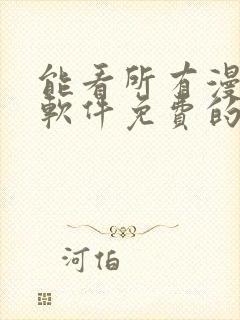 能看所有漫
軟件免費的
河伯